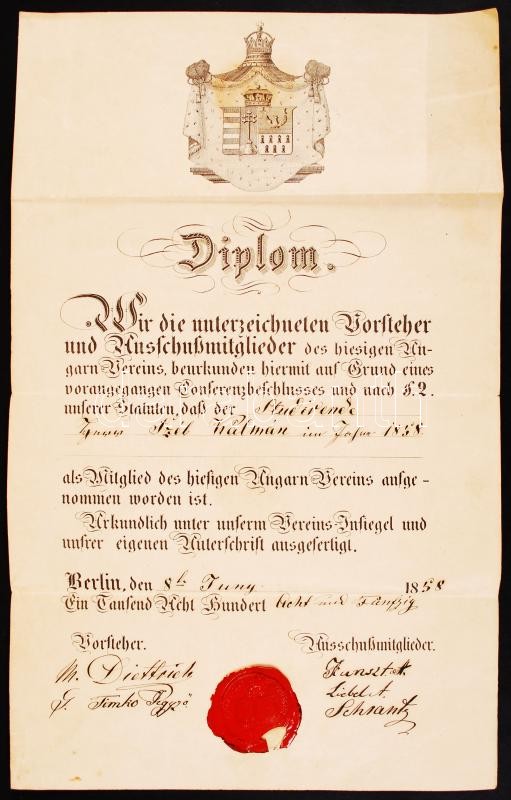 Diplom.
Wir die unterzeichneten Vorsteher
und Ausschußmitglieder des hiesigen Un-
garn Vereins, beurkunden hiermit auf Grund eines
vorangegangen Conferenzbeschlusses und nach §.2.
unserer Statuten, daß der Studirende
Herr Szél Kálmán im Jahre 1858
als Mitglied des hiesigen Ungarn Vereins aufge-
nommen worden ist.
Urkundlich unter unserm Vereins-Insiegel und
unsrer eigenen Unterschrift ausgefertigt.
Berlin, den 8t Juny 1858
Ein Tausend Acht Hundert Acht und Fünfzig
Vorsteher. Ausschußmitglieder.
M. Diettrich
Timko
Liebel A.
Schrantz